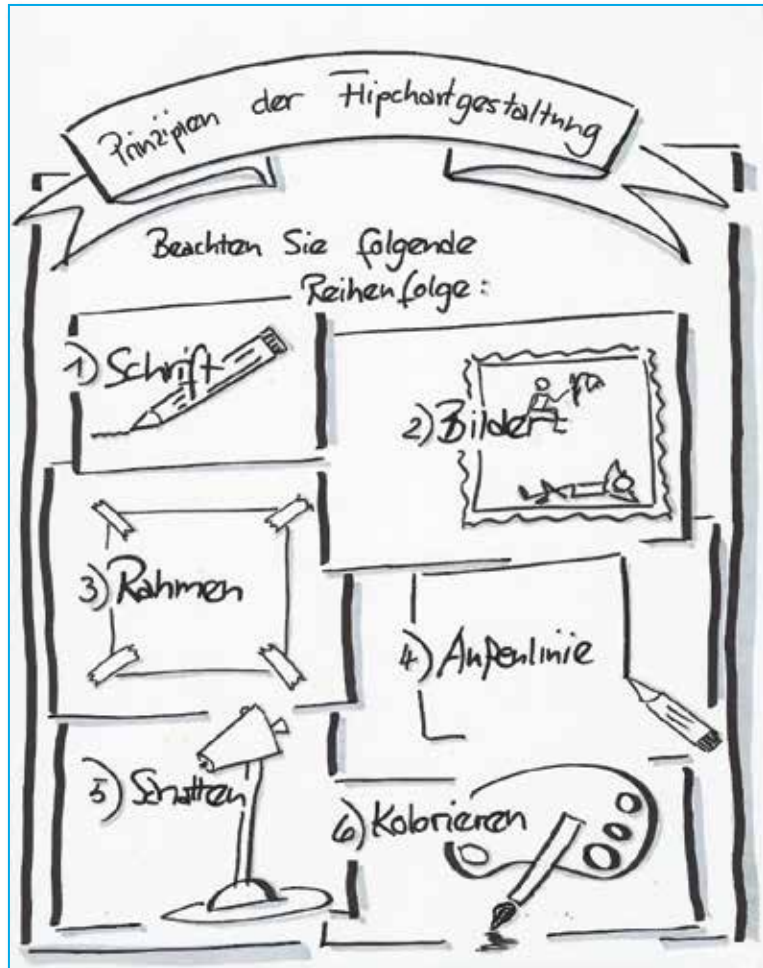 Prinzipien der Flipchartgestaltung
Beachten Sie folgende
Reihenfolge:
1) Schrift
2) Bilder
3) Rahmen
4) Außenlinie
5) Schatten
6) Kolorieren